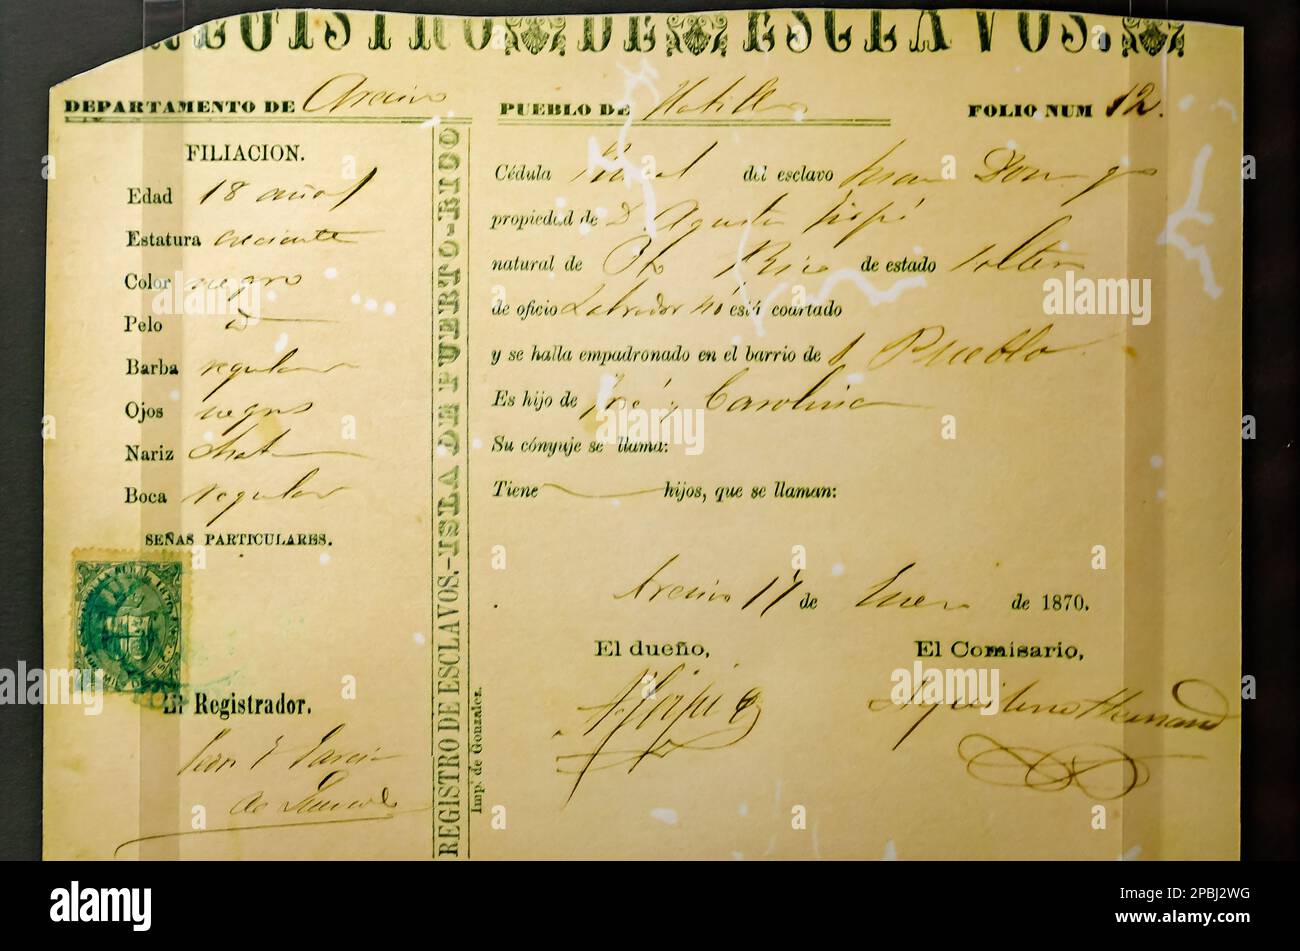 REGISTRO DE ESCLAVOS.
DEPARTAMENTO DE Arecivo
PUEBLO DE Hatillo
FOLIO NUM 12.
FILIACION.
Edad 18 años
Estatura creciente
Color negro
Pelo id
Barba regular
Ojos negros
Nariz chata
Boca regular
SEÑAS PARTICULARES.
El Registrador.
ISLA DE PUERTO-RICO
REGISTRO DE ESCLAVOS.-ISLA DE PUERTO-RICO
Imp. de Gonzalez.
Cédula del esclavo Juan Domingo
propiedad de D. Agustin
natural de Pto Rico de estado soltero
de oficio Labrador no está coartado
y se halla empadronado en el barrio de Pueblo
Es hijo de José y Carolina
Su cónyuje se llama:
Tiene hijos, que se llaman:
Arecivo 17 de Enero de 1870.
El dueño,
El Comisario,
alamy
Image ID: 2PBJ2WG
www.alamy.com